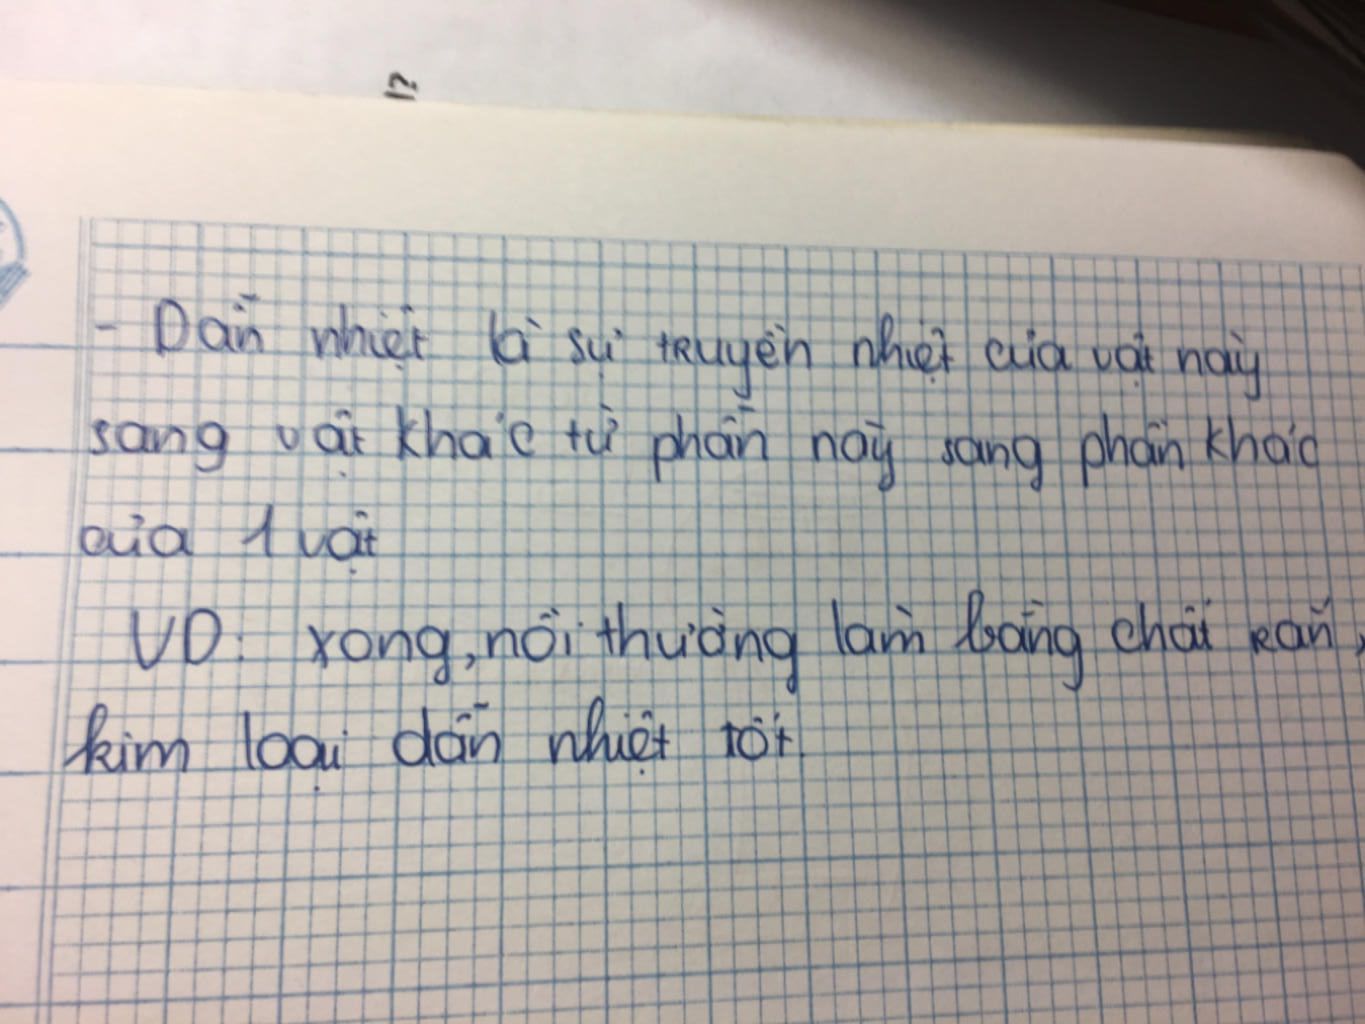 !?
- Dẫn nhiệt là sự truyền nhiệt của vật này
sang vật khác từ phần này sang phần khác
của 1 vật
VD: xong, nồi thường làm bằng chất rắn,
kim loại dẫn nhiệt tốt.